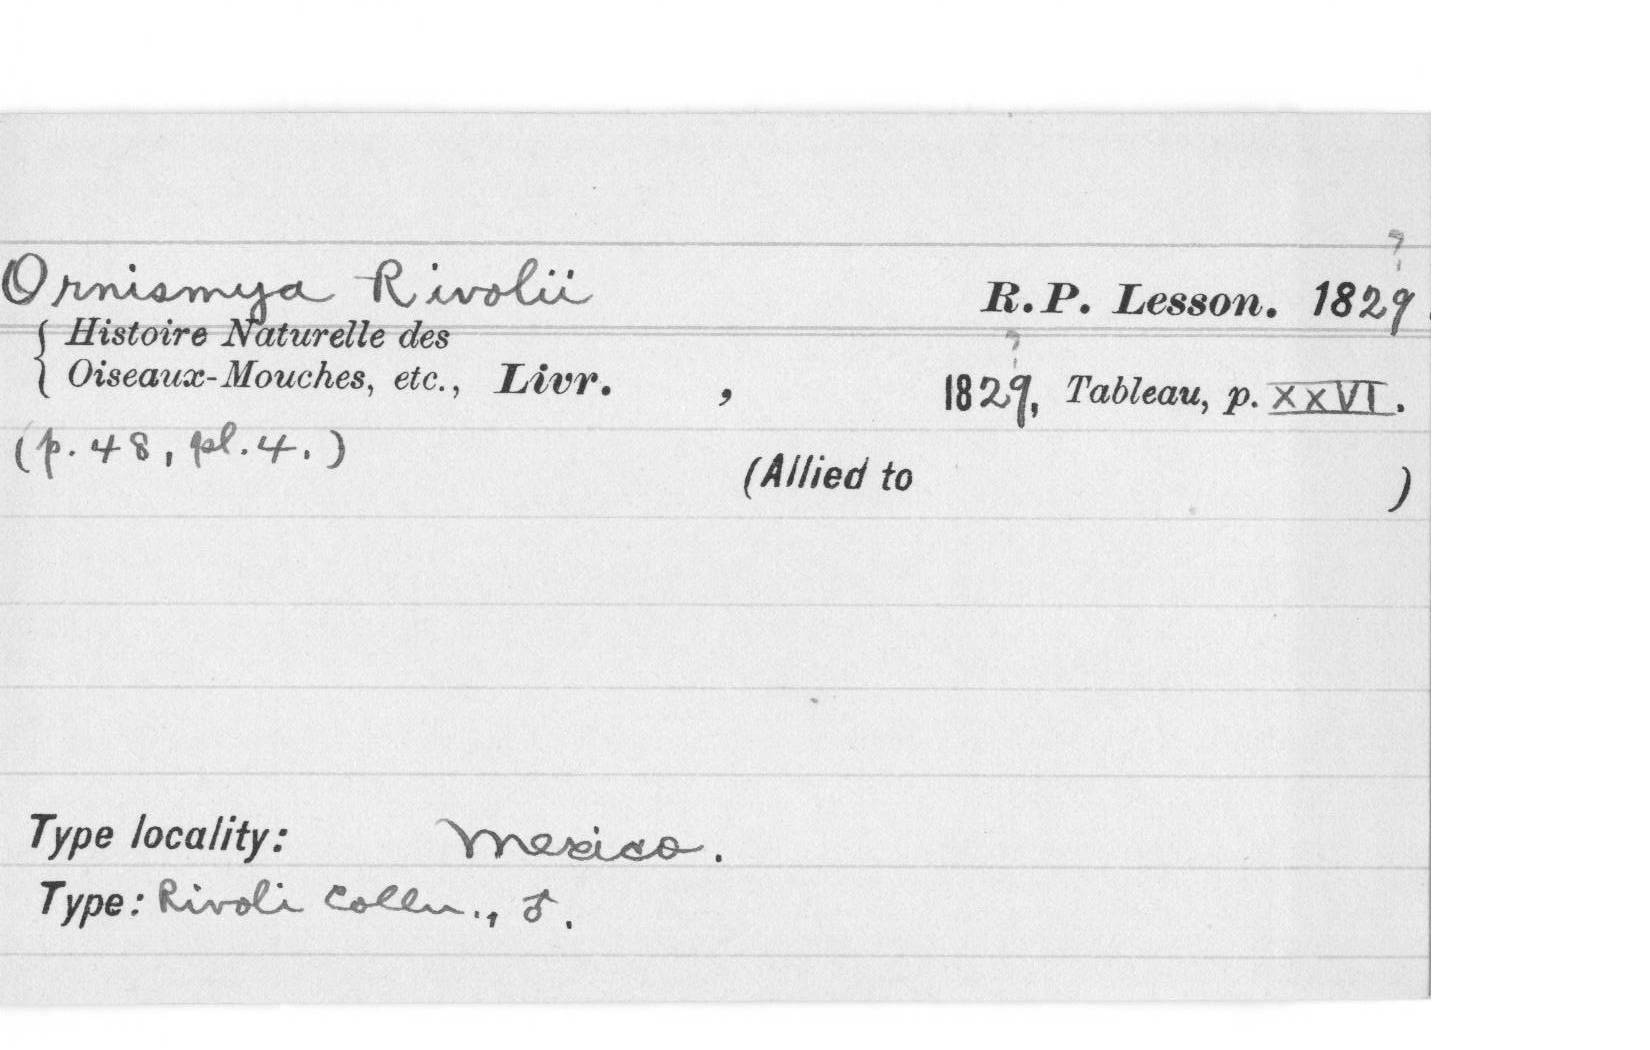 ?
Ornismya Rivolii R.P. Lesson. 1829.
{ Histoire Naturelle des
Oiseaux-Mouches, etc., Livr. , 1829, Tableau, p. XXVI.
?
(p. 48, pl. 4.)
(Allied to )
Type locality: Mexico.
Type: Rivoli Colln., ♂.